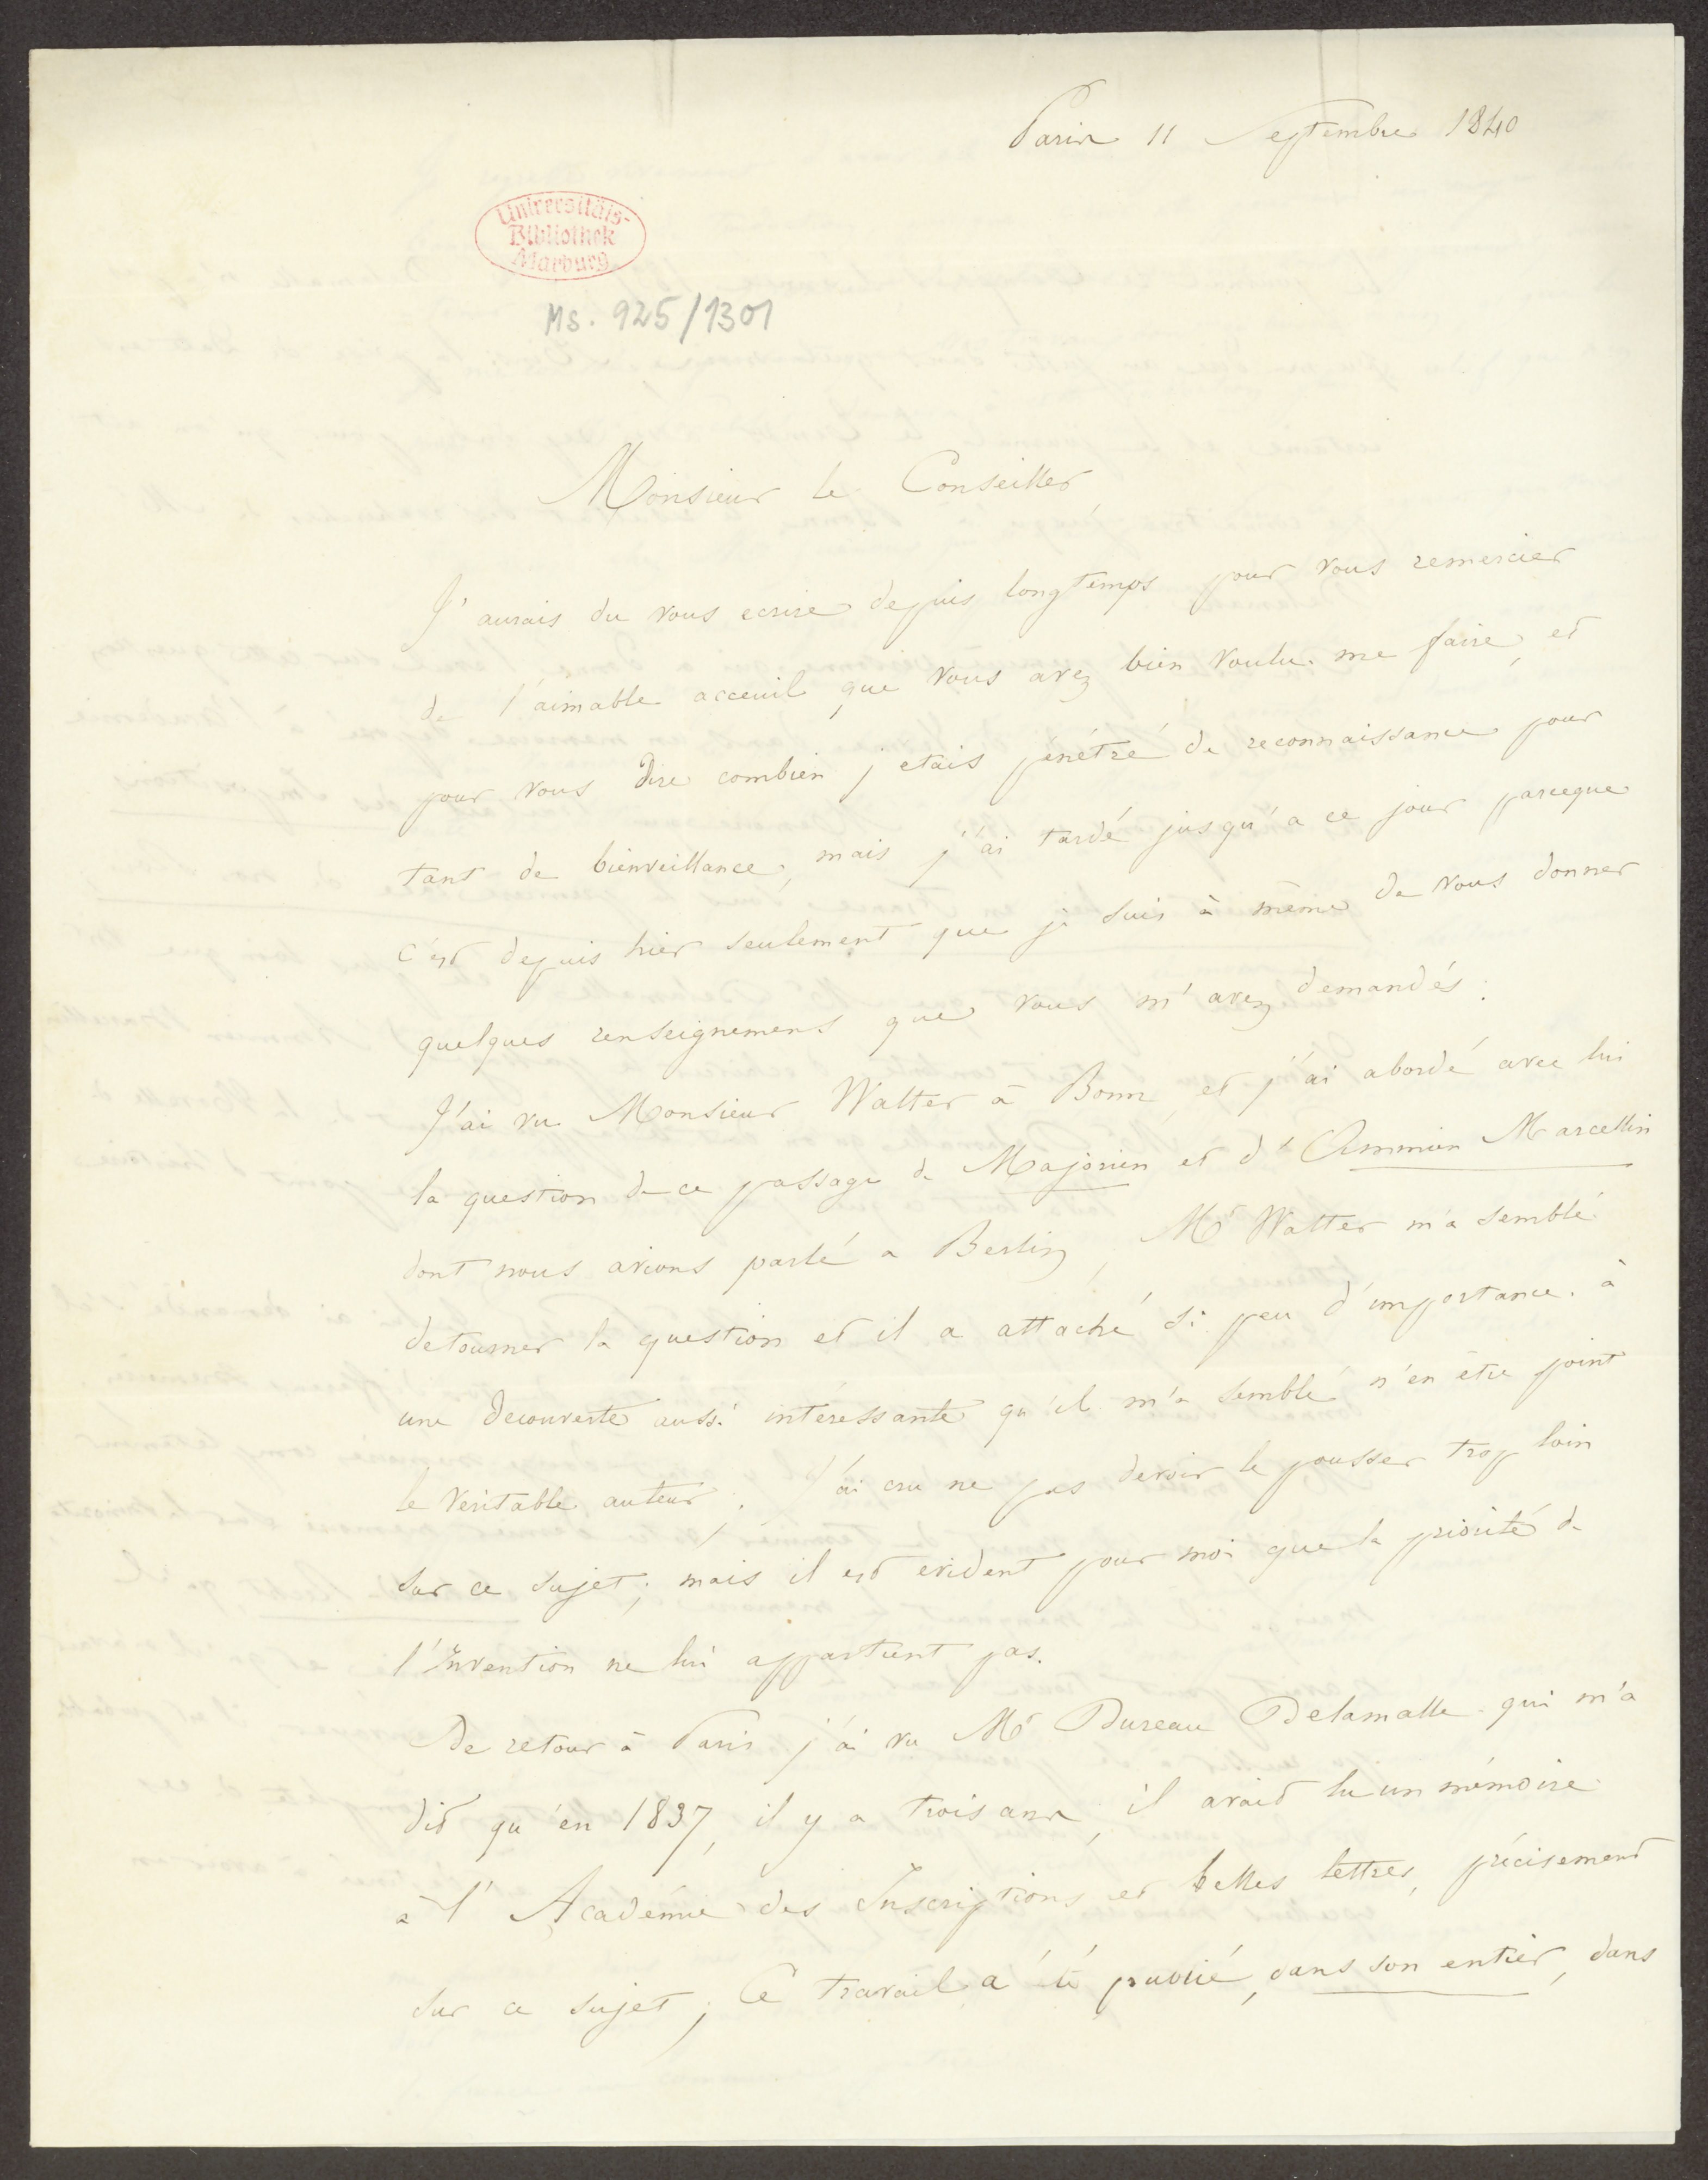 Paris 11 Septembre 1840
Universitäts-
Bibliothek
Marburg
Ms. 925/1301
Monsieur le Conseiller
J'aurais du vous ecrire depuis longtemps pour vous remercier
de l'aimable acceuil que vous avez bien voulu me faire, et
pour vous dire combien j'etais pénétré de reconnaissance pour
tant de bienveillance; mais j'ai tardé jusqu'a ce jour parceque
c'est depuis hier seulement que je suis à même de vous donner
quelques renseignements que vous m'avez demandés:
J'ai vu Monsieur Walter à Bonn, et j'ai abordé avec lui
la question de ce passage de Majorien et d'Ammien Marcellin
dont nous avions parlé a Berlin, Mr Walter m'a semblé
detourner la question et il a attaché si peu d'importance à
une decouverte aussi intéressante qu'il m'a semblé n'en être point
le veritable auteur; J'ai cru ne pas devoir le pousser trop loin
sur ce sujet; mais il est evident pour moi que la priorité de
l'Invention ne lui appartient pas.
De retour à Paris j'ai vu Mr Dureau Delamalle qui m'a
dit qu'en 1837, il y a trois ans, il avait lu un mémoire
à l'Académie des Inscriptions et belles lettres, précisement
sur ce sujet; Ce travail a été publié, dans son entier, dans